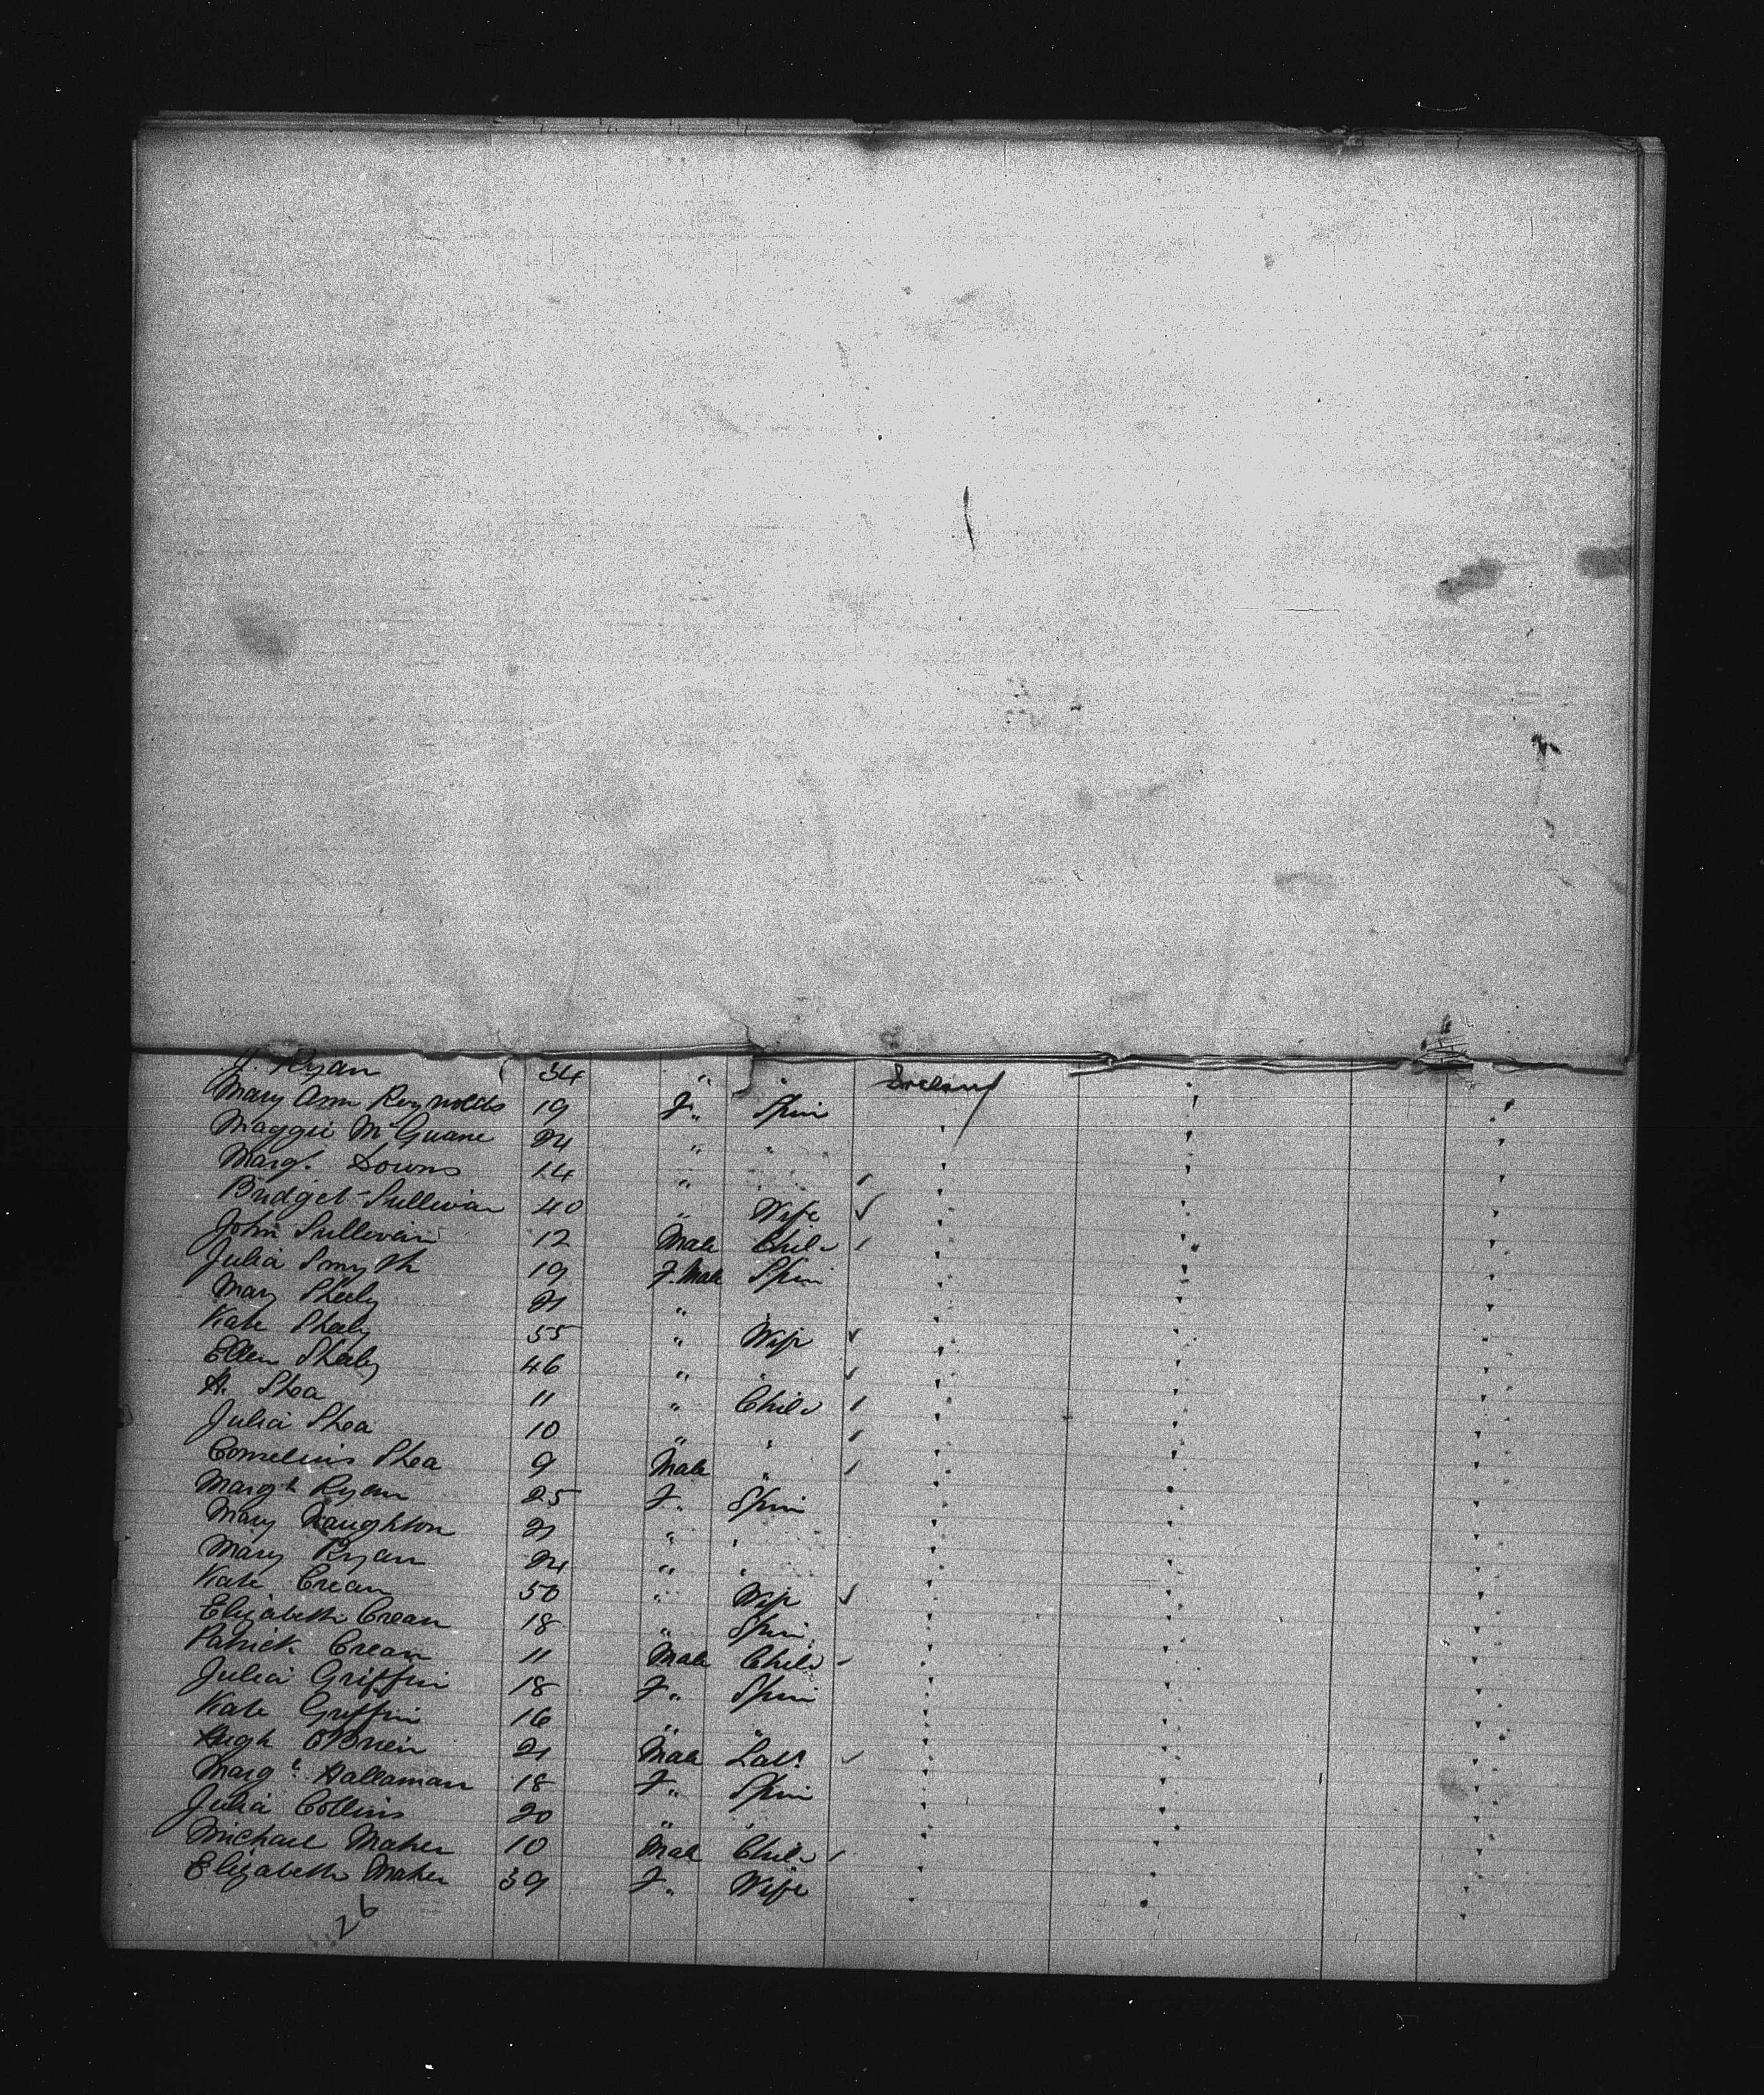 J. Ryan 34 " " Ireland
Mary Ann Reynolds 19 F. " Spin "
Maggie McGuane 24 " " "
Margt. Downs 14 " " "
Bridget Sullivan 40 " Wife "
John Sullivan 12 Male Child "
Julia Smyth 19 F. Male Spin "
Mary Sheely 21 " " "
Kate Sheely 55 " Wife "
Ellen Sheely 46 " " "
A. Shea 11 " Child "
Julia Shea 10 " " "
Cornelius Shea 9 Male " "
Margt Ryan 25 F. " Spin "
Mary Naughton 21 " " "
Mary Ryan 24 " " "
Kate Crean 50 " Wife "
Elizabeth Crean 18 " Spin "
Patrick Crean 11 Male Child "
Julia Griffin 18 F. " Spin "
Kate Griffin 16 " " "
Hugh O'Brien 21 Male Labr "
Margt. Hallaman 18 F. " Spin "
Julia Collins 20 " " "
Michael Maher 10 Male Child "
Elizabeth Maher 39 F. " Wife "
26